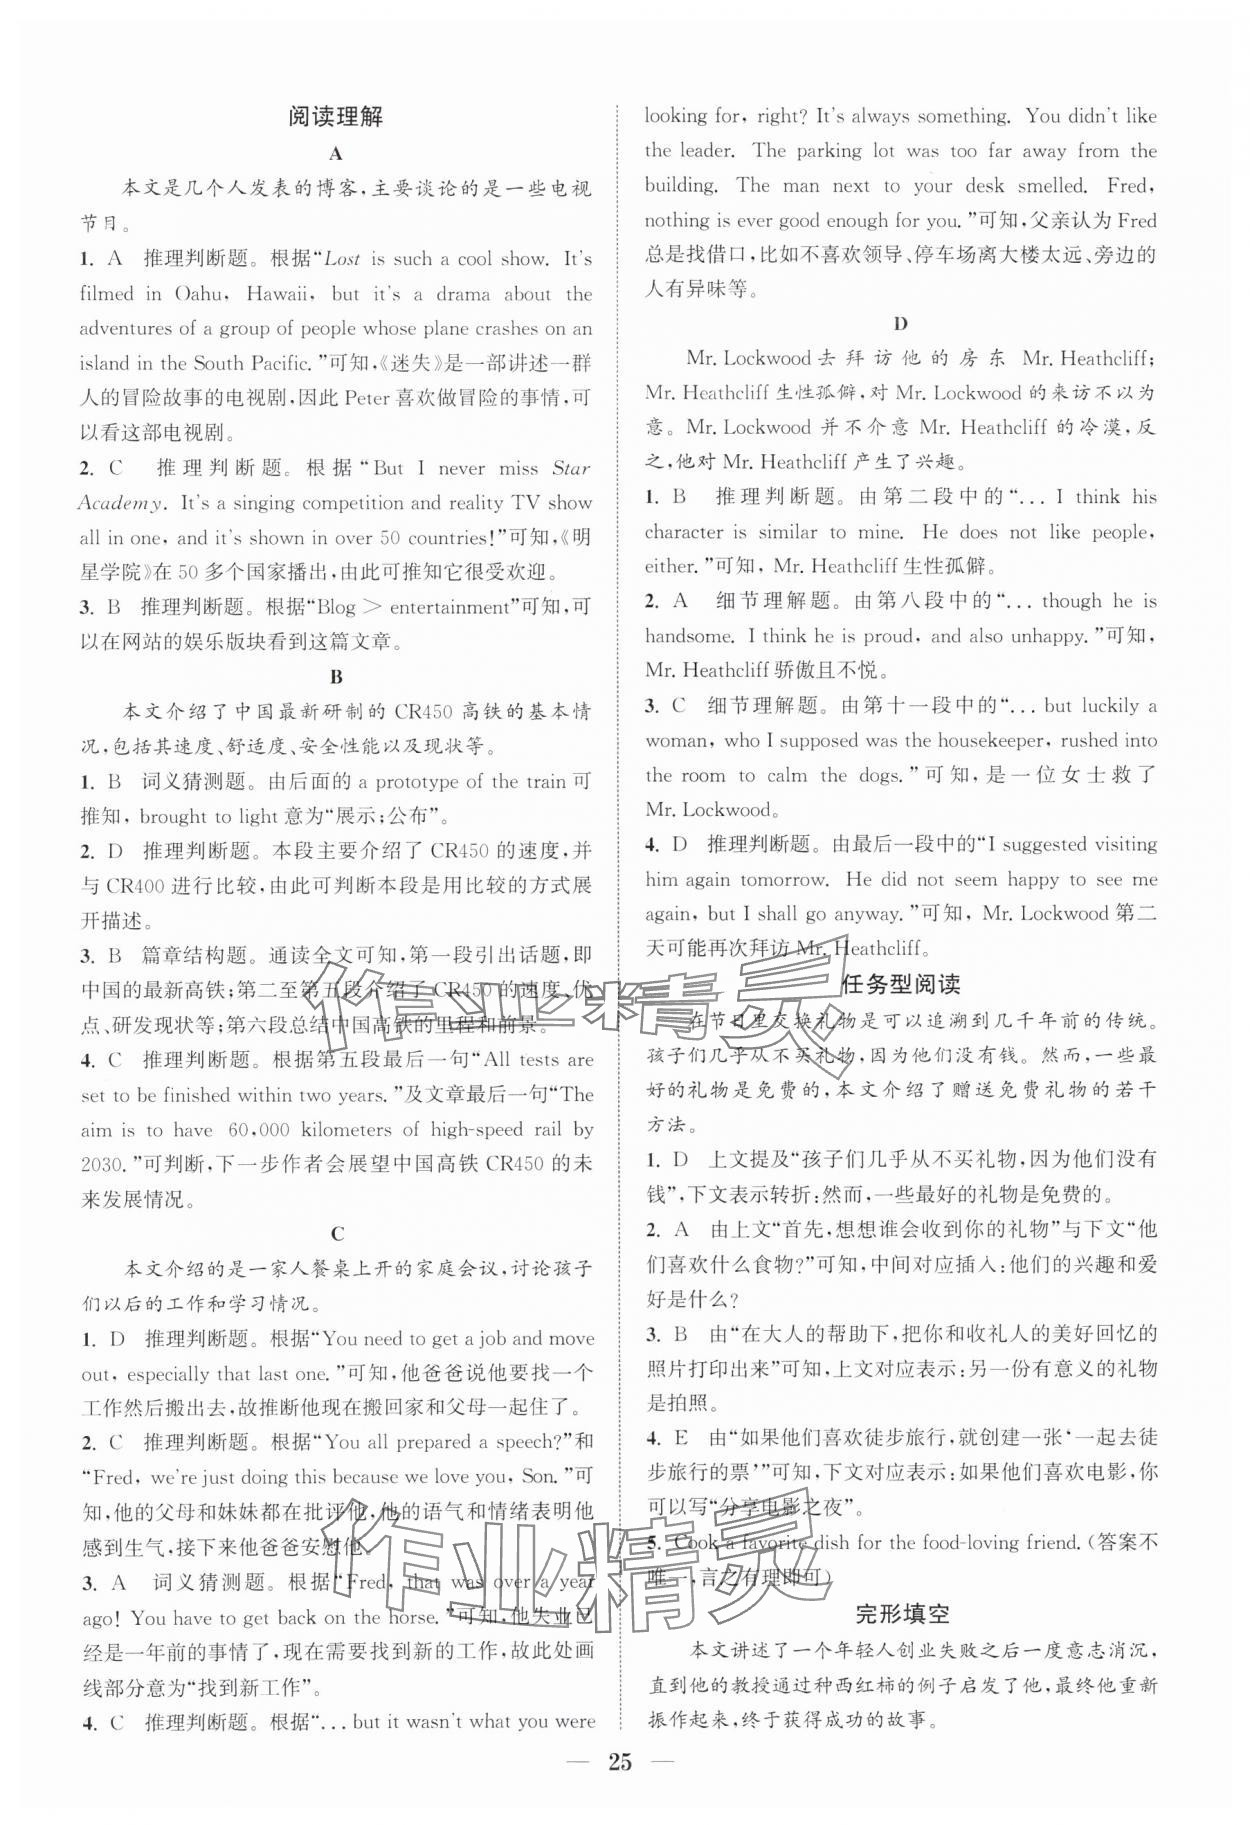 阅读理解
A
本文是几个人发表的博客，主要谈论的是一些电视
节目。
1. A 推理判断题。根据“Lost is such a cool show. It's
filmed in Oahu, Hawaii, but it's a drama about the
adventures of a group of people whose plane crashes on an
island in the South Pacific.”可知，《迷失》是一部讲述一群
人的冒险故事的电视剧，因此 Peter 喜欢做冒险的事情，可
以看这部电视剧。
2. C 推理判断题。根据“But I never miss Star
Academy. It's a singing competition and reality TV show
all in one, and it's shown in over 50 countries!”可知，《明
星学院》在 50 多个国家播出，由此可推知它很受欢迎。
3. B 推理判断题。根据“Blog > entertainment”可知，可
以在网站的娱乐版块看到这篇文章。
B
本文介绍了中国最新研制的 CR450 高铁的基本情
况，包括其速度、舒适度、安全性能以及现状等。
1. B 词义猜测题。由后面的 a prototype of the train 可
推知，brought to light 意为“展示；公布”。
2. D 推理判断题。本段主要介绍了 CR450 的速度，并
与 CR400 进行比较，由此可判断本段是用比较的方式展
开描述。
3. B 篇章结构题。通读全文可知，第一段引出话题，即
中国的最新高铁；第二至第五段介绍了 CR450 的速度、优
点、研发现状等；第六段总结中国高铁的里程和前景。
4. C 推理判断题。根据第五段最后一句“All tests are
set to be finished within two years.”及文章最后一句“The
aim is to have 60,000 kilometers of high-speed rail by
2030.”可判断，下一步作者会展望中国高铁 CR450 的未
来发展情况。
C
本文介绍的是一家人餐桌上开的家庭会议，讨论孩子
们以后的工作和学习情况。
1. D 推理判断题。根据“You need to get a job and move
out, especially that last one.”可知，他爸爸说他需要找一个
工作然后搬出去，故推断他现在搬回家和父母一起住了。
2. C 推理判断题。根据“You all prepared a speech?”和
“Fred, we're just doing this because we love you, Son.”可
知，他的父母和妹妹都在批评他，他的语气和情绪表明他
感到生气，接下来他爸爸安慰他。
3. A 词义猜测题。根据“Fred, that was over a year
ago! You have to get back on the horse.”可知，他失业已
经是一年前的事情了，现在需要找到新的工作，故此处画
线部分意为“找到新工作”。
4. C 推理判断题。根据“... but it wasn't what you were
looking for, right? It's always something. You didn't like
the leader. The parking lot was too far away from the
building. The man next to your desk smelled. Fred,
nothing is ever good enough for you.”可知，父亲认为 Fred
总是找借口，比如不喜欢领导、停车场离大楼太远、旁边的
人有异味等。
D
Mr. Lockwood 去拜访他的房东 Mr. Heathcliff；
Mr. Heathcliff 生性孤僻，对 Mr. Lockwood 的来访不以为
意。Mr. Lockwood 并不介意 Mr. Heathcliff 的冷漠，反
之，他对 Mr. Heathcliff 产生了兴趣。
1. B 推理判断题。由第二段中的“... I think his
character is similar to mine. He does not like people,
either.”可知，Mr. Heathcliff 生性孤僻。
2. A 细节理解题。由第八段中的“... though he is
handsome. I think he is proud, and also unhappy.”可知，
Mr. Heathcliff 骄傲且不悦。
3. C 细节理解题。由第十一段中的“... but luckily a
woman, who I supposed was the housekeeper, rushed into
the room to calm the dogs.”可知，是一位女士救了
Mr. Lockwood。
4. D 推理判断题。由最后一段中的“I suggested visiting
him again tomorrow. He did not seem happy to see me
again, but I shall go anyway.”可知，Mr. Lockwood 第二
天可能再次拜访 Mr. Heathcliff。
任务型阅读
在节日里交换礼物是可以追溯到几千年前的传统。
孩子们几乎从不买礼物，因为他们没有钱。然而，一些最
好的礼物是免费的，本文介绍了赠送免费礼物的若干
方法。
1. D 上文提及“孩子们几乎从不买礼物，因为他们没有
钱”，下文表示转折：然而，一些最好的礼物是免费的。
2. A 由上文“首先，想想谁会收到你的礼物”与下文“他
们喜欢什么食物？”可知，中间对应插入：他们的兴趣和爱
好是什么？
3. B 由“在大人的帮助下，把你和收礼人的美好回忆的
照片打印出来”可知，上文对应表示：另一份有意义的礼物
是拍照。
4. E 由“如果他们喜欢徒步旅行，就创建一张‘一起去徒
步旅行的票’”可知，下文对应表示：如果他们喜欢电影，你
可以写“分享电影之夜”。
5. Cook a favorite dish for the food-loving friend.（答案不
唯一，言之有理即可）
完形填空
本文讲述了一个年轻人创业失败之后一度意志消沉，
直到他的教授通过种西红柿的例子启发了他，最终他重新
振作起来，终于获得成功的故事。
— 25 —
作业精灵
作业精灵